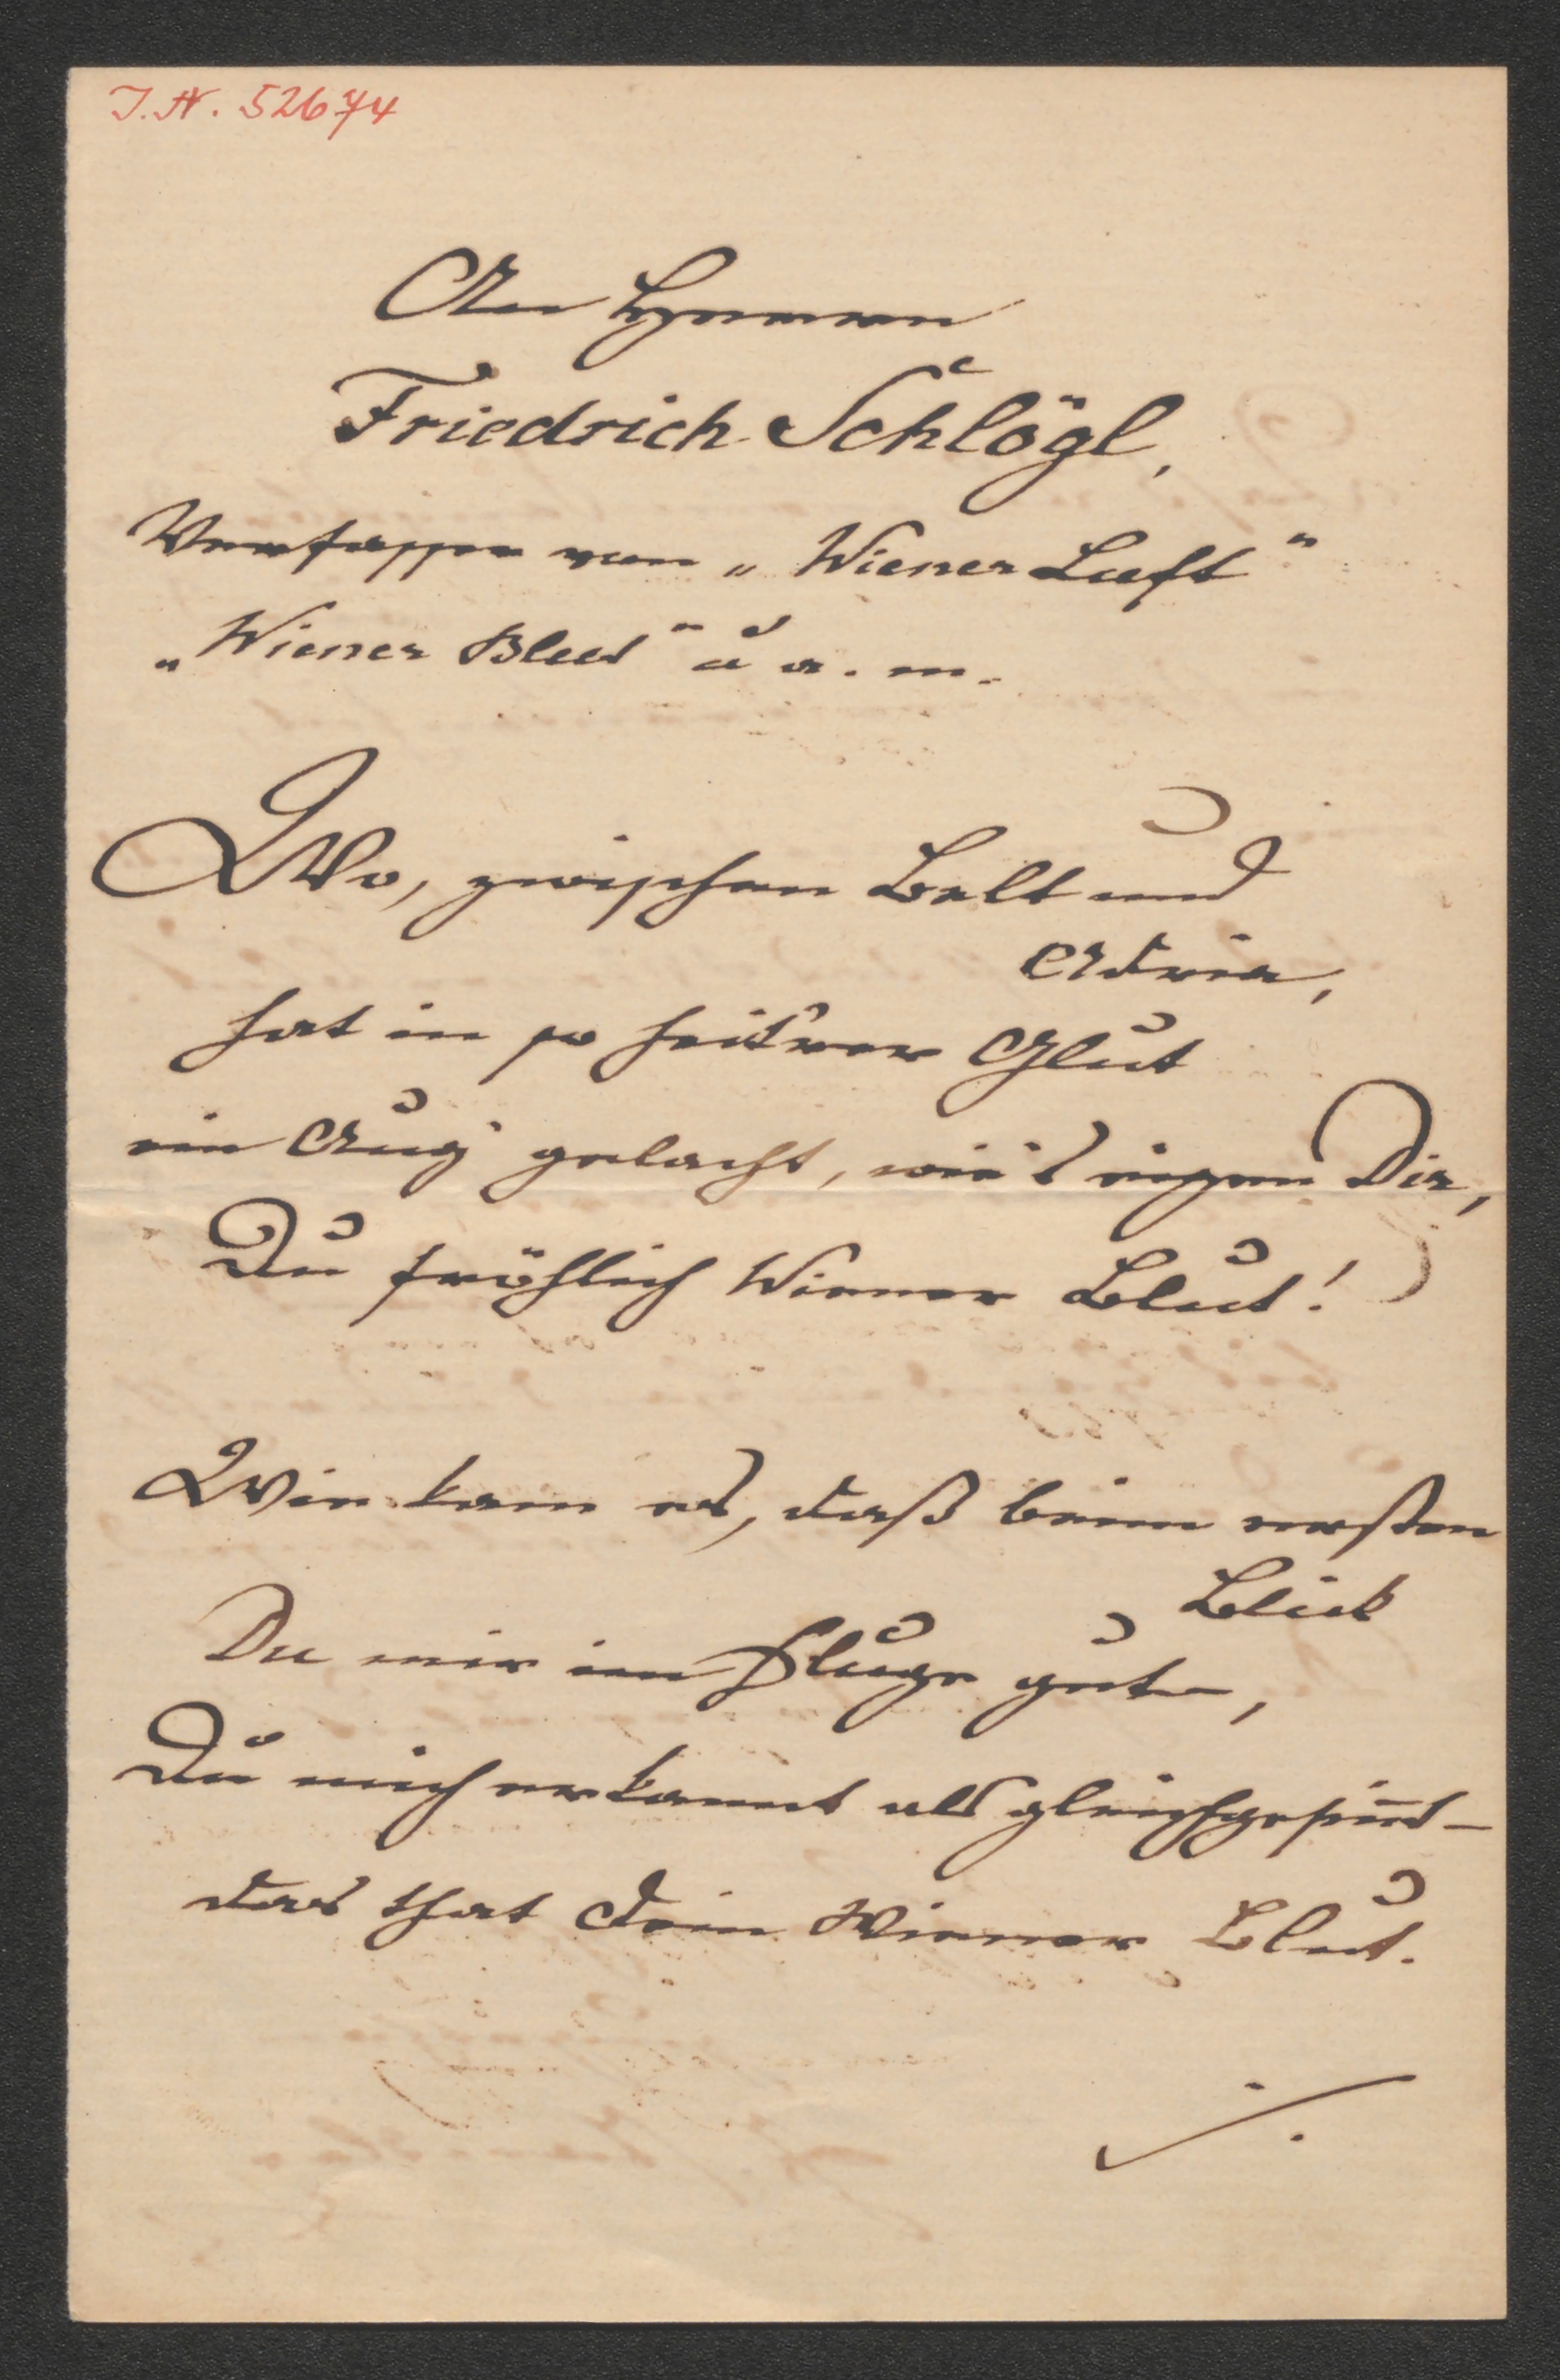 I.N. 52674
An Herrn
Friedrich Schlögl,
Verfasser von „Wiener Luft“
„Wiener Blut“ u a. m.
Wo, zwischen Belt und
Adria,
hat in so heit'rer Glut
ein Aug' gelacht, wie's eigen Dir,
Du fröhlich Wiener Blut!
Wie kam es, daß beim ersten
Blick
Du mir im Fluge gut,
Du mich erkannt als gleichgesin̅t –
das that dein Wiener Blut.
./.